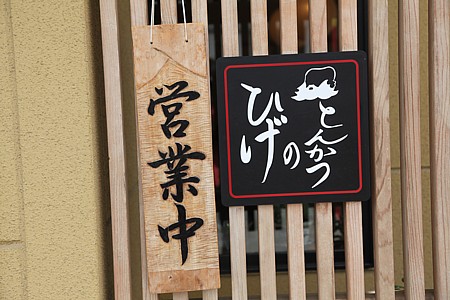 営業中
とんかつ
の
ひげ